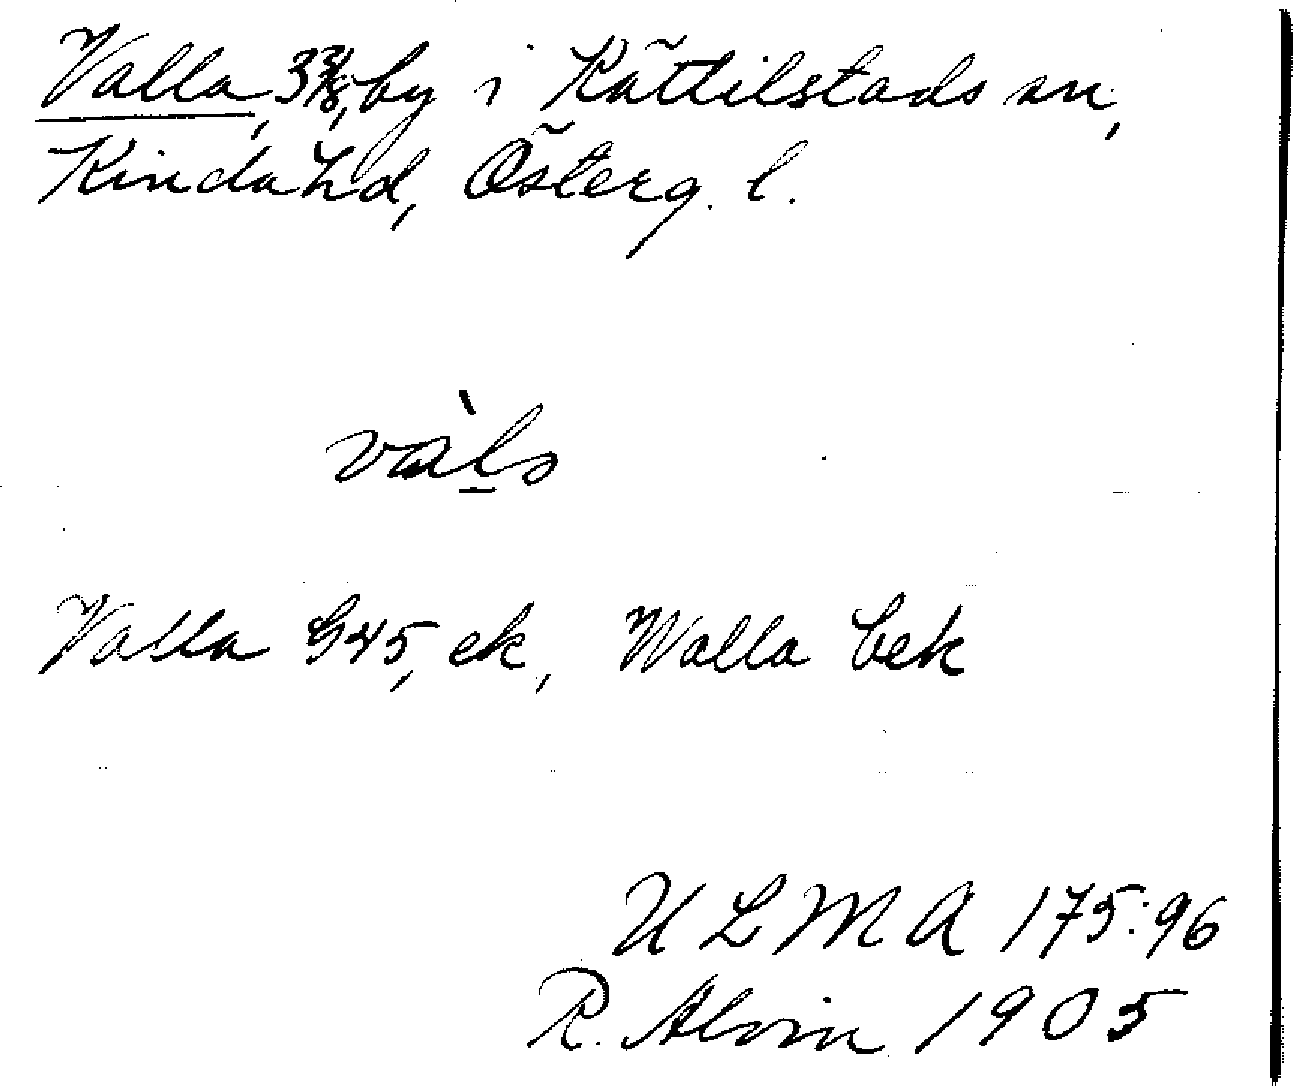 Valla, 3 3/8, by i Kättilstads sn,
Kinda hd, Österg. l.
vàls
Valla G45, ek, Walla bek
ULMA 175:96
R. Alvin 1905